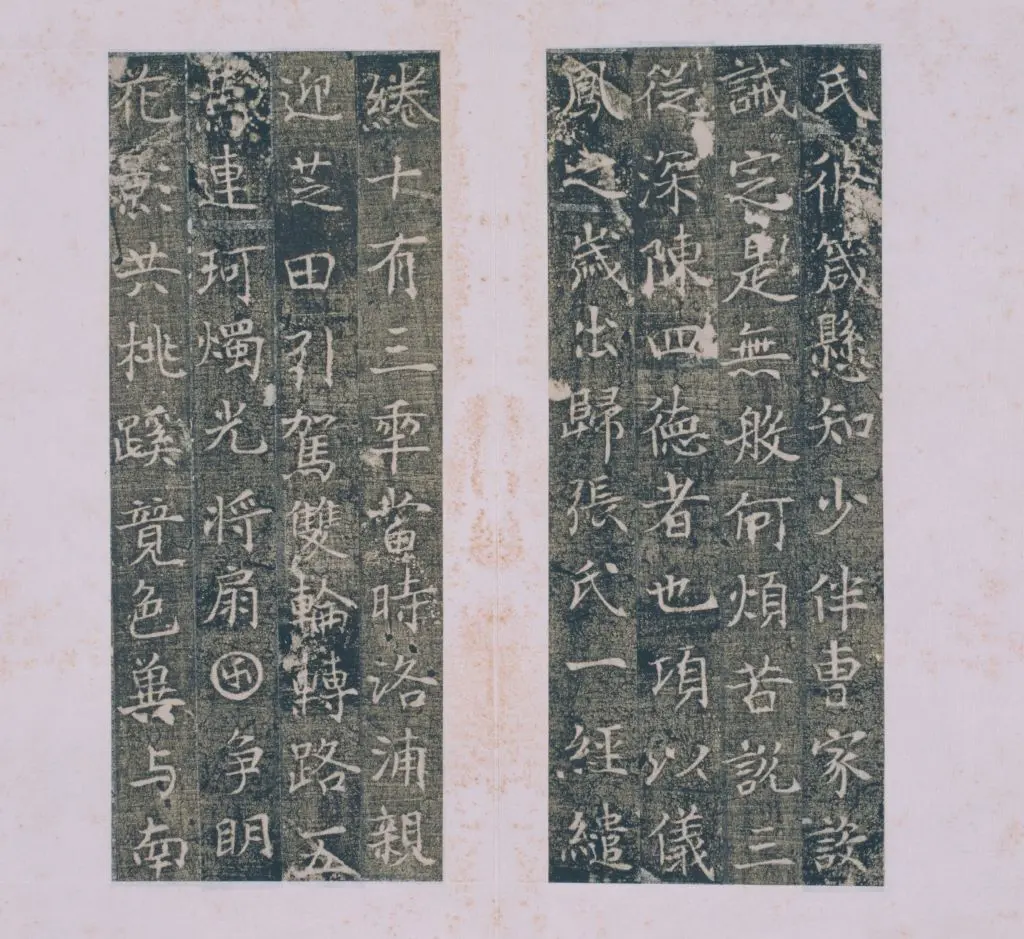 氏攸箴懸知少伴曹家設
誡定是無般何煩苦說三
從深陳四德者也項以儀
鳳之歲出歸張氏一經繾
綣十有三𠡦當時洛浦親
迎芝田引駕雙輪轉路五
連珂燭光將扇𠥱爭明
花影共桃蹊競色冀与南